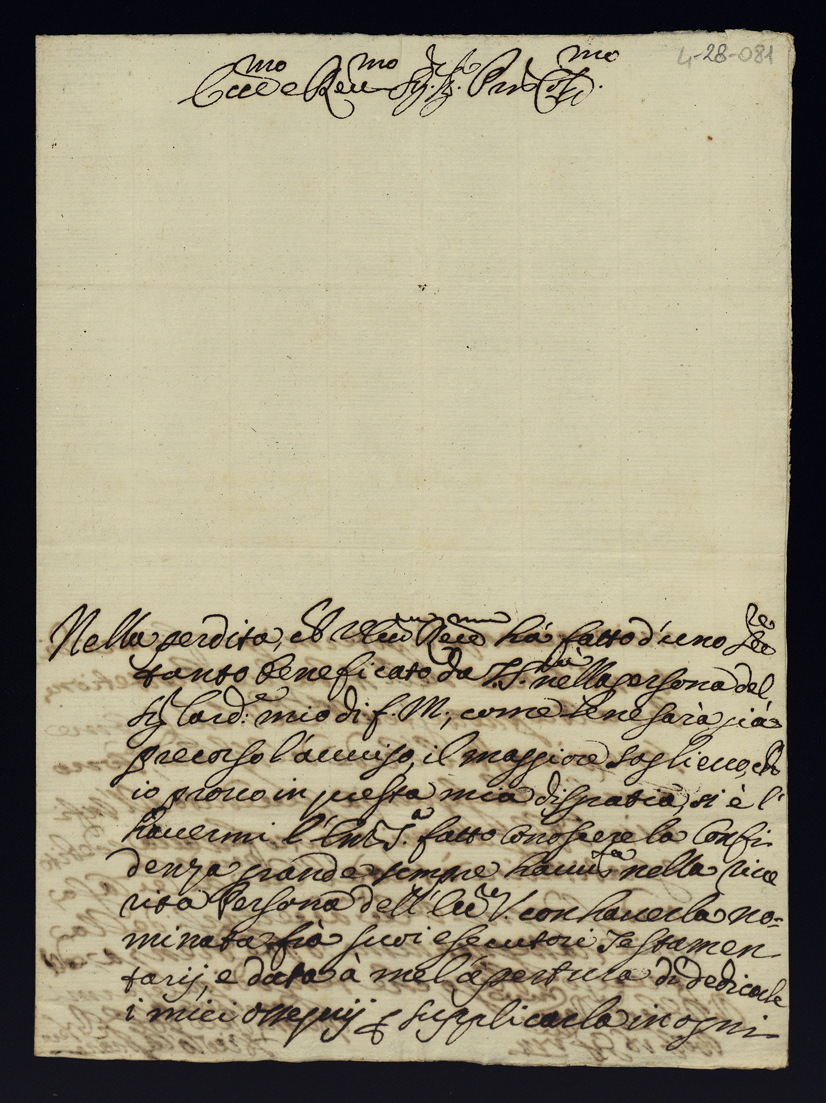 4-28-081
Ecc.mo e Re.mo Sig.r Sig.r Pron Col.mo
Nella perdita, ch' Re.mo hà fatto d'uno
tanto beneficato da nella persona del
Sig.r Card.e mio di f. M., come gene sarà già
precorso l'auuiso, il maggiore soglieuo, ch'
io prouo in questa mia disgratia, si è l'
hauermi l'Em. S.a fatto conoscere la confi-
denza grande sempre hauuta nella riue
rita Persona dell' E. V. con hauerla no-
minata frà suoi esecutori Testamen-
tarij, e data à me l'apertura di dedicarle
i miei ossequij e supplicarla in ogni